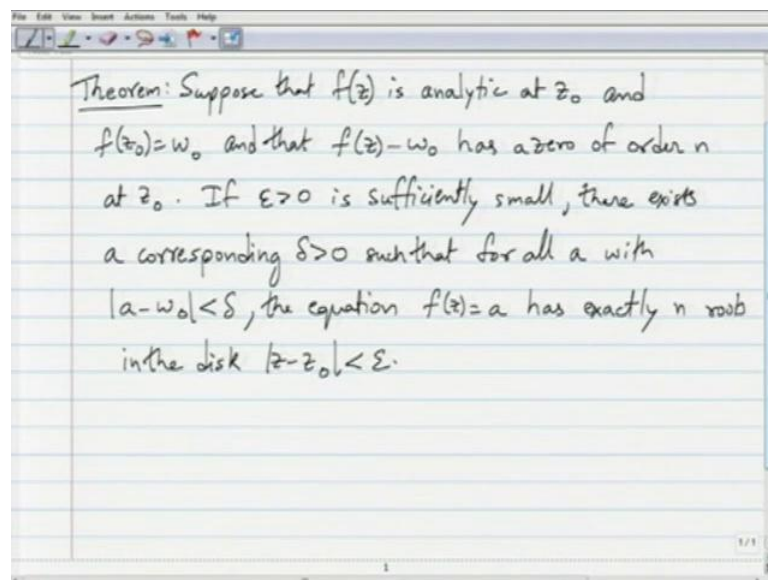 File Edit View Insert Actions Tools Help
Theorem: Suppose that f(z) is analytic at z₀ and
f(z₀)=w₀ and that f(z)-w₀ has a zero of order n
at z₀. If ε>0 is sufficiently small, there exists
a corresponding δ>0 such that for all a with
|a-w₀|<δ, the equation f(z)=a has exactly n roots
in the disk |z-z₀|<ε.
1/1
1